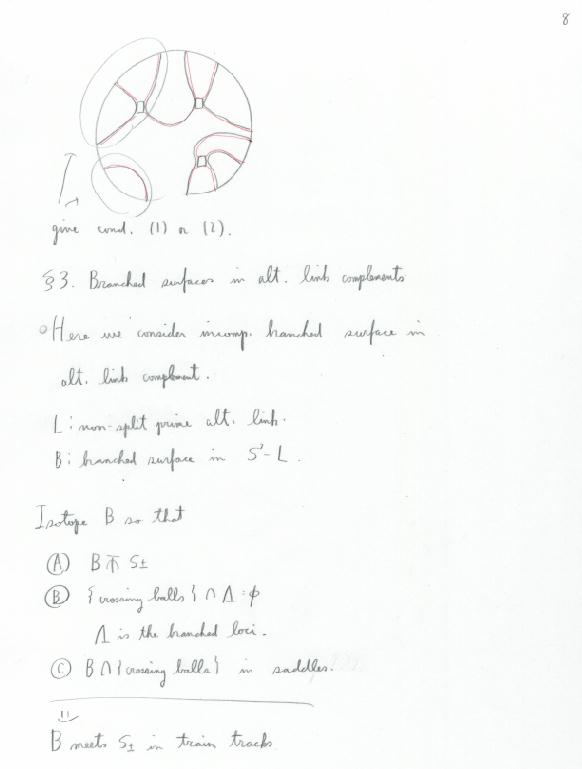 8
give cond. (1) or (2).
§3. Branched surfaces in alt. link complements
Here we consider incomp. branched surface in
alt. link complement.
L : non-split prime alt. link.
B : branched surface in S³-L.
Isotope B so that
Ⓐ B ⋔ S±
Ⓑ {crossing balls} ∩ Λ = φ
Λ is the branched loci.
Ⓒ B∩{crossing balls} in saddles.
B meets S± in train tracks.